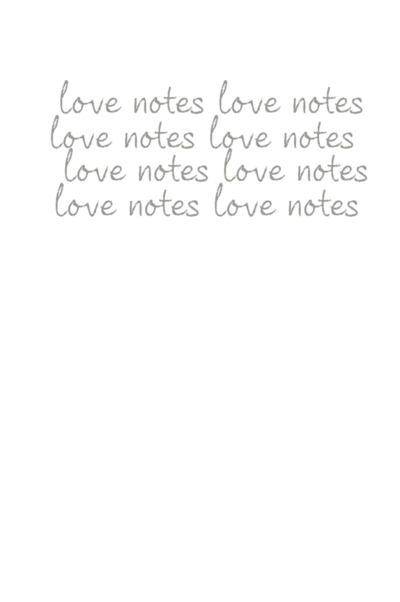 love notes love notes
love notes love notes
love notes love notes
love notes love notes